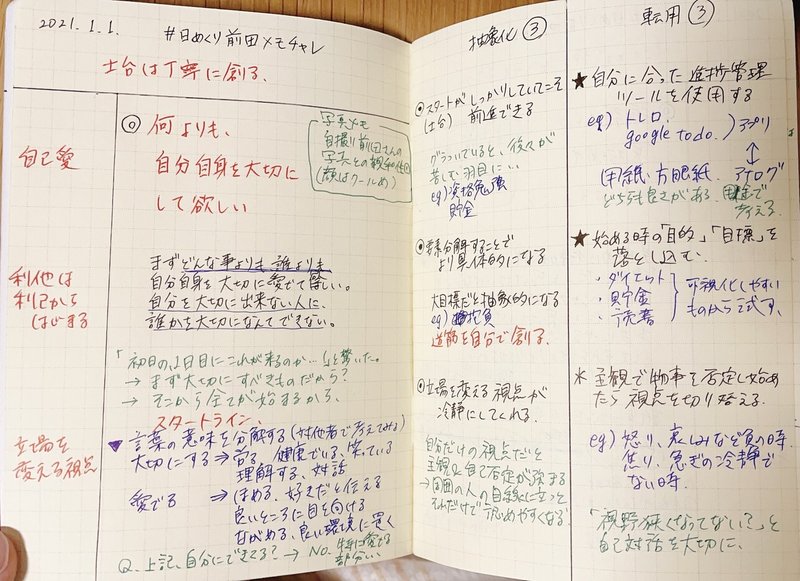 2021.1.1.
#日めくり前田メモチャレ
土台は丁寧に創る、
自己愛
◎ 何よりも、
自分自身を大切に
して欲しい
写真メモ
自撮り前田さんの
(顔はクールめ)
利他は
利己から
はじまる
まずどんな事よりも、誰よりも
自分自身を大切に愛せて欲しい。
自分を大切に出来ない人に、
誰かを大切になんてできない。
「初日の、1日目にこれが来るのか…」と驚いた。
→ まず大切にすべきものだから?
→ そこから全てが始まるから、
スタートライン、
立場を
変える視点
▼ 言葉の意味を分解する(対他者で考えてみる)
大切にする ⇒ 労る、健康でいる、笑っている
理解する、対話
愛でる ⇒ ほめる、好きだと伝える
良いところに目を向ける
ながめる、良い環境に置く
Q. 上記、自分にできてる? → NO.
部分い。
抽象化 ③
◎スタートがしっかりしていてこそ
(土台) 前進できる
グラついていると、後々が
苦しむ羽目に…
eg) 資格勉強
貯金
◎要素分解することで
より具体的になる
大目標だと抽象的になる
eg) 抱負
道筋を自分で創る、
◎立場を変える視点が
冷静にしてくれる、
自分だけの視点だと
主観&自己否定が強まる
→周囲の人の目線に立つと
それだけで認めやすくなる
転用 ③
★自分に合った進捗管理
ツールを使用する
eg) トレロ、
google to do.) アプリ
↕
(用)紙、方眼紙、アナログ
どちらも良さがある、用途で
考える、
★始める時の「目的」「目標」を
落とし込む、
・ダイエット
・貯金
・読書
可視化しやすい
ものから試す、
※ 主観で物事を否定し始め
たら視点を切り替える、
eg) 怒り、哀しみなど負の時、
焦り、急ぎの冷静で
ない時、
「視野狭くなってない?」と
自己対話を大切に、